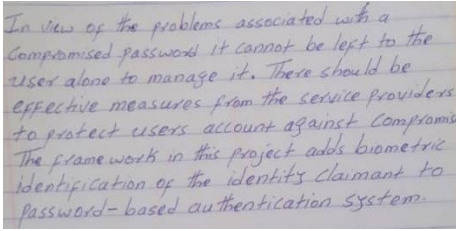 In view of the problems associated with a
Compromised password it cannot be left to the
user alone to manage it. There should be
effective measures from the service providers
to protect users account against compromis
The frame work in this project adds biometric
identification of the identity claimant to
password-based authentication system.